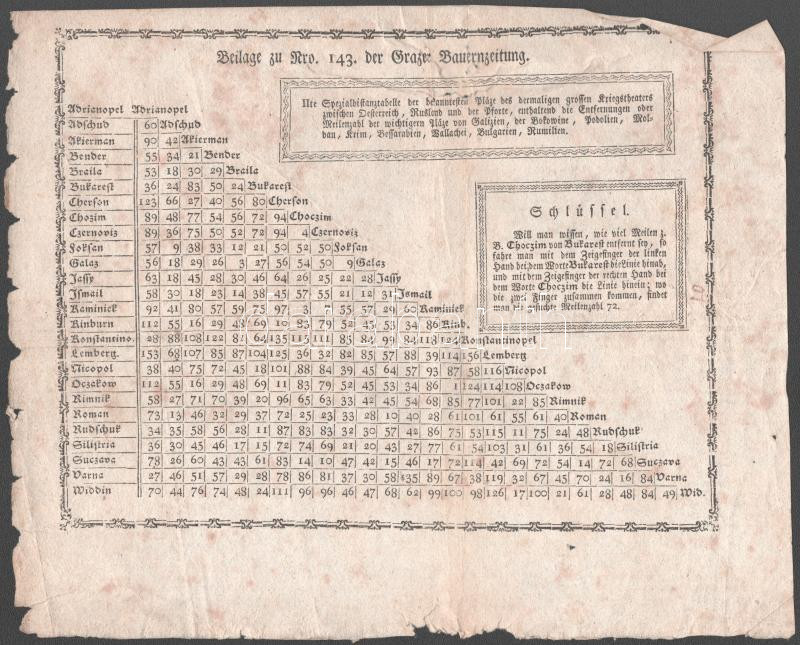 Beilage zu Nro. 143. der Grazer Bauernzeitung.
IIte Spezialdistanztabelle der bekanntesten Pläze des dermaligen grossen Kriegstheaters
zwischen Oesterreich, Rußland und der Pforte, enthaltend die Entfernungen oder
Meilenzahl der wichtigern Pläze von Galizien, der Bokowine, Podolien, Mol-
dau, Krim, Bessarabien, Wallachei, Bulgarien, Rumilien.
Schlüssel.
Will man wissen, wie viel Meilen z.
B. Choczim von Bukarest entfernt sey, so
fahre man mit dem Zeigefinger der linken
Hand bei dem Worte Bukarest die Linie hinab,
und mit dem Zeigefinger der rechten Hand bei
dem Worte Choczim die Linie hinein; wo
die zwei Finger zusammen kommen, findet
man die gesuchte Meilenzahl 72.
Adrianopel Adrianopel
Adschud 60 Adschud
Akierman 90 42 Akierman
Bender 55 34 21 Bender
Braila 53 18 30 29 Braila
Bukarest 36 24 83 50 24 Bukarest
Cherson 123 66 27 40 56 80 Cherson
Chozim 89 48 77 54 56 72 94 Choczim
Czernoviz 89 36 75 50 52 72 94 4 Czernoviz
Foksan 57 9 38 33 12 21 50 52 50 Foksan
Galaz 56 18 29 26 3 27 56 54 50 9 Galaz
Jassy 63 18 45 28 30 46 64 26 25 22 28 Jassy
Ismail 58 30 18 23 14 38 45 57 55 21 12 31 Ismail
Kaminiek 92 41 80 57 59 75 97 3 55 57 29 60 Kaminiek
Kinburn 112 55 16 29 48 69 10 83 79 52 45 53 34 86 Kinb.
Konstantino. 28 88 108 122 81 64 135 115 111 85 84 99 84 118 124 Konstantinopel
Lemberg. 153 68 107 85 87 104 125 36 32 82 85 57 88 39 114 156 Lemberg
Nicopol 38 40 75 72 45 18 101 88 84 39 45 64 57 93 87 58 116 Nicopol
Oczakow 112 55 16 29 48 69 11 83 79 52 45 53 34 86 1 124 114 108 Oczakow
Rimnik 58 27 71 70 39 20 96 65 63 33 42 45 54 68 85 77 101 22 85 Rimnik
Roman 73 13 46 32 29 37 72 25 23 33 28 10 40 28 61 101 61 55 61 40 Roman
Rudschuk 34 35 58 56 28 11 87 83 83 32 30 57 42 86 75 53 115 11 75 24 48 Rudschuk
Silistria 36 30 45 46 17 15 72 74 69 21 20 43 27 77 61 54 103 31 61 36 54 18 Silistria
Suczava 78 26 60 43 43 61 83 14 10 47 42 15 46 17 72 114 42 69 72 54 14 72 68 Suczava
Varna 27 46 51 57 29 28 78 86 81 37 30 58 35 89 67 38 119 32 67 45 70 24 16 84 Varna
Widdin 70 44 76 74 48 24 111 96 96 46 47 68 62 99 100 98 126 17 100 21 61 28 48 84 49 Wid.